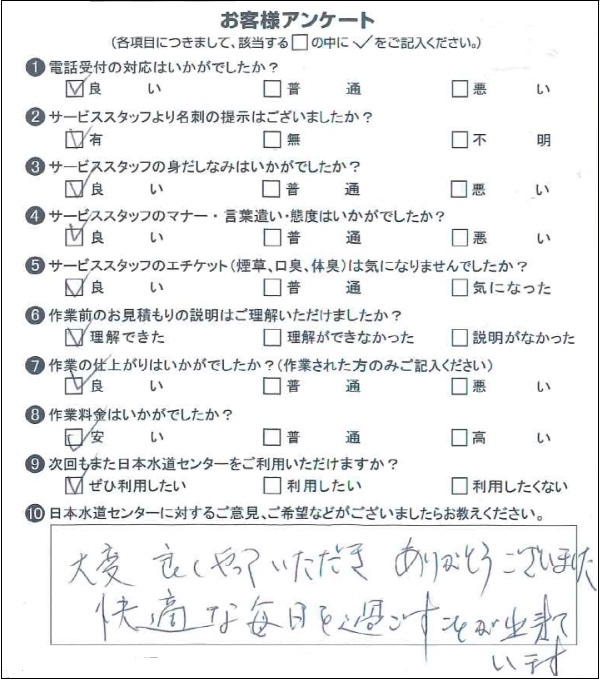 お客様アンケート
(各項目につきまして、該当する□の中に✓をご記入ください。)
❶ 電話受付の対応はいかがでしたか？
☑良い □普通 □悪い
❷ サービススタッフより名刺の提示はございましたか？
☑有 □無 □不明
❸ サービススタッフの身だしなみはいかがでしたか？
☑良い □普通 □悪い
❹ サービススタッフのマナー・言葉遣い・態度はいかがでしたか？
☑良い □普通 □悪い
❺ サービススタッフのエチケット(煙草、口臭、体臭)は気になりませんでしたか？
☑良い □普通 □気になった
❻ 作業前のお見積もりの説明はご理解いただけましたか？
☑理解できた □理解ができなかった □説明がなかった
❼ 作業の仕上がりはいかがでしたか？(作業された方のみご記入ください)
☑良い □普通 □悪い
❽ 作業料金はいかがでしたか？
☑安い □普通 □高い
❾ 次回もまた日本水道センターをご利用いただけますか？
☑ぜひ利用したい □利用したい □利用したくない
❿ 日本水道センターに対するご意見、ご希望などがございましたらお教えください。
大変 良くやっていただき ありがとうございました
快適な毎日を過ごすことが出来て
います